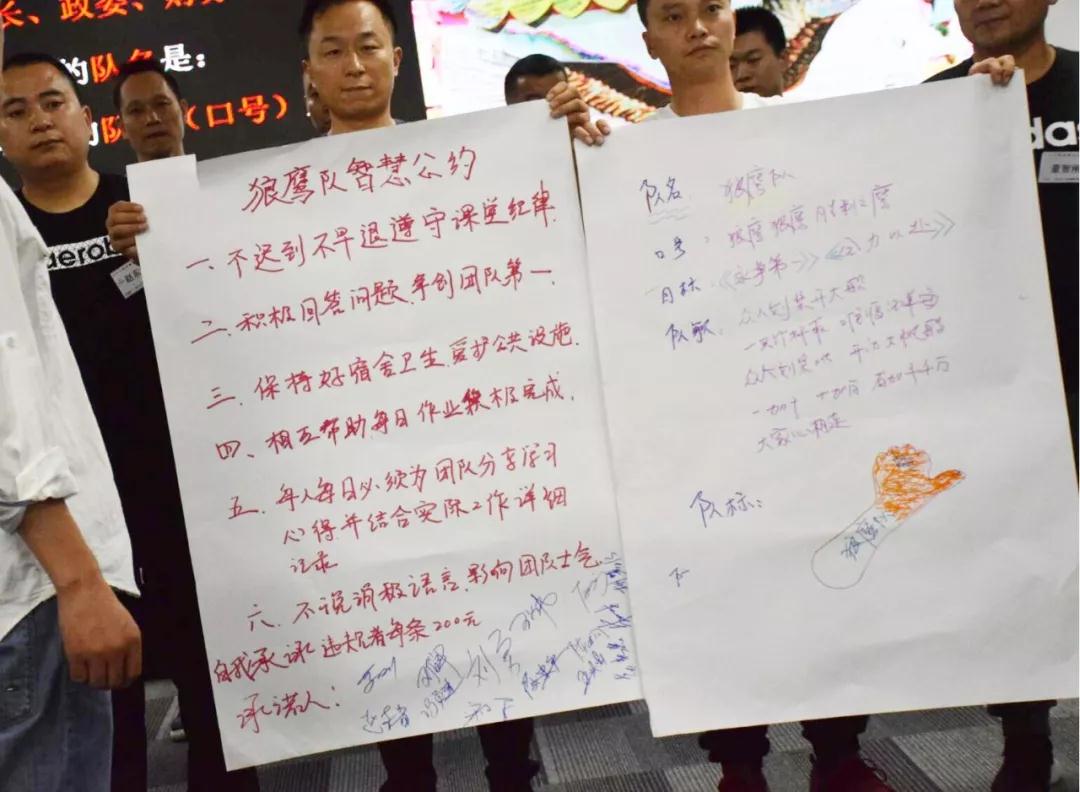 长、政委、财
的队名是:
的队 (口号)
daerob
狼鹰队智慧公约
一、不迟到不早退遵守课堂纪律.
二、积极回答问题,争创团队第一.
三、保持好宿舍卫生,爱护公共设施.
四、相互帮助,每日作业积极完成.
五、每人每日必须为团队分享学习
心得,并结合实际工作详细
记录
六、不说消极语言,影响团队士气
自我承诺违规者每条200元
承诺人:
队名: 狼鹰队
口号: 狼鹰狼鹰 胜利之鹰
目标: 《永争第一》《全力以赴》
队歌: 众人划桨开大船
一支竹篙
众人划桨 开动大帆船
一加十 十加百 百加千千万
大家心相连
队标:
狼鹰队
aerob